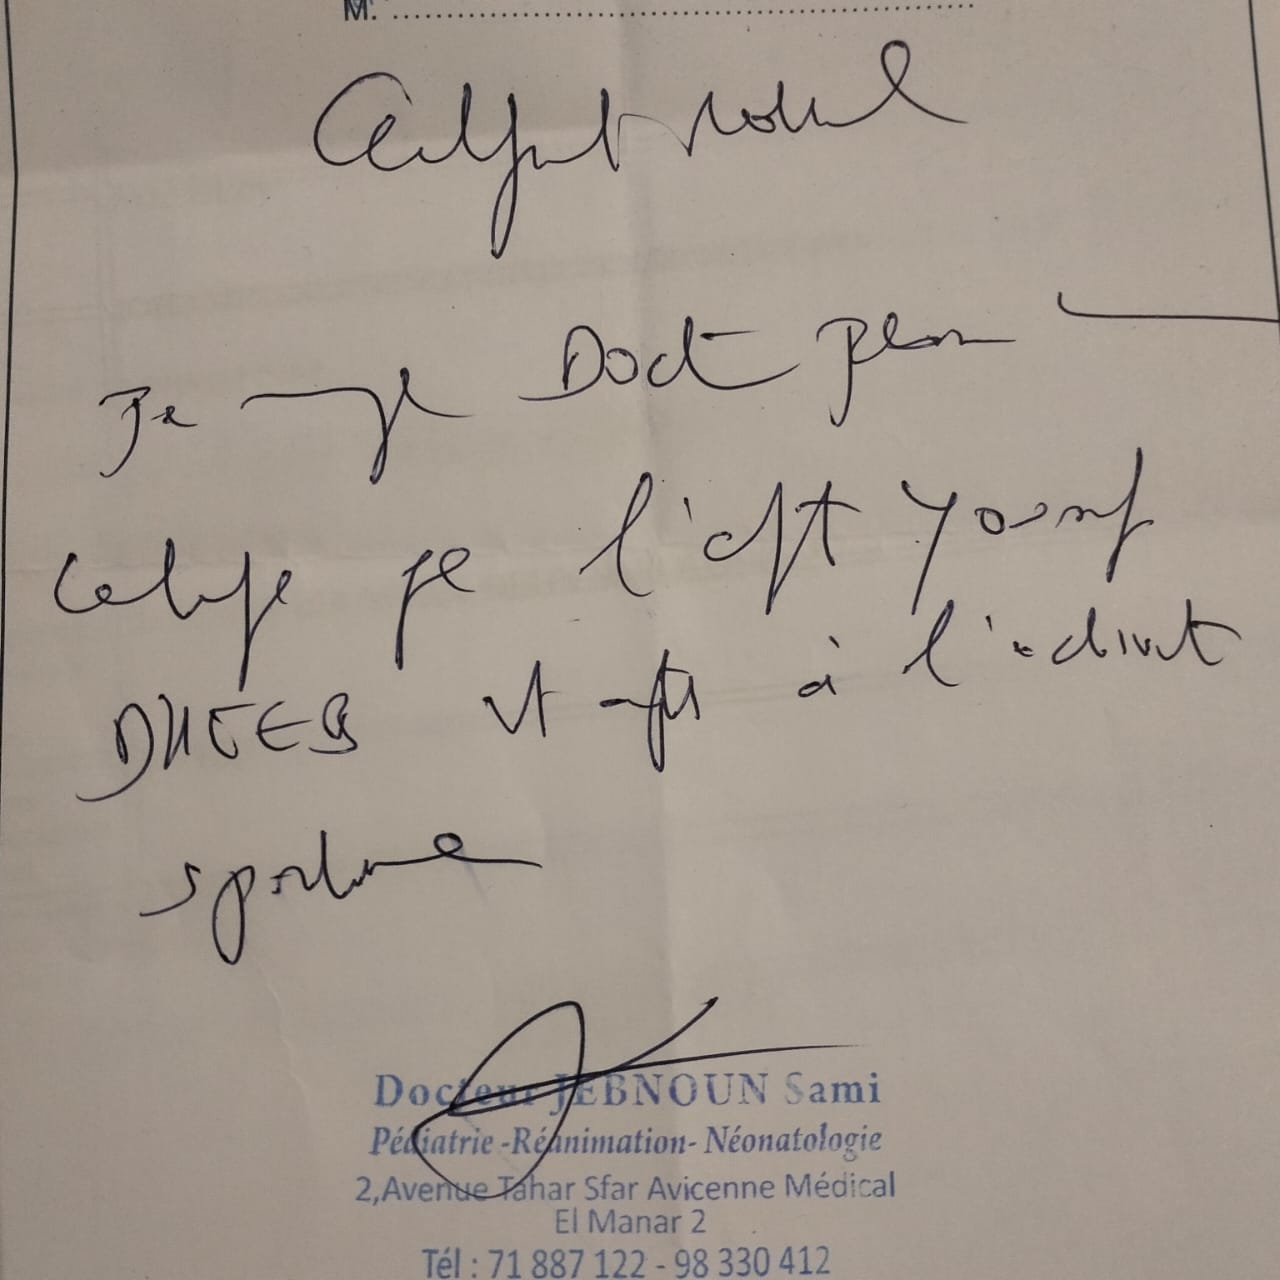 M. ........................................
Certificat médical
Je Doct
certifie que l'enft Youssef
DHIEB est apte à l'activité
sportive
Docteur JEBNOUN Sami
Pédiatrie -Réanimation- Néonatologie
2,Avenue Tahar Sfar Avicenne Médical
El Manar 2
Tél : 71 887 122 - 98 330 412